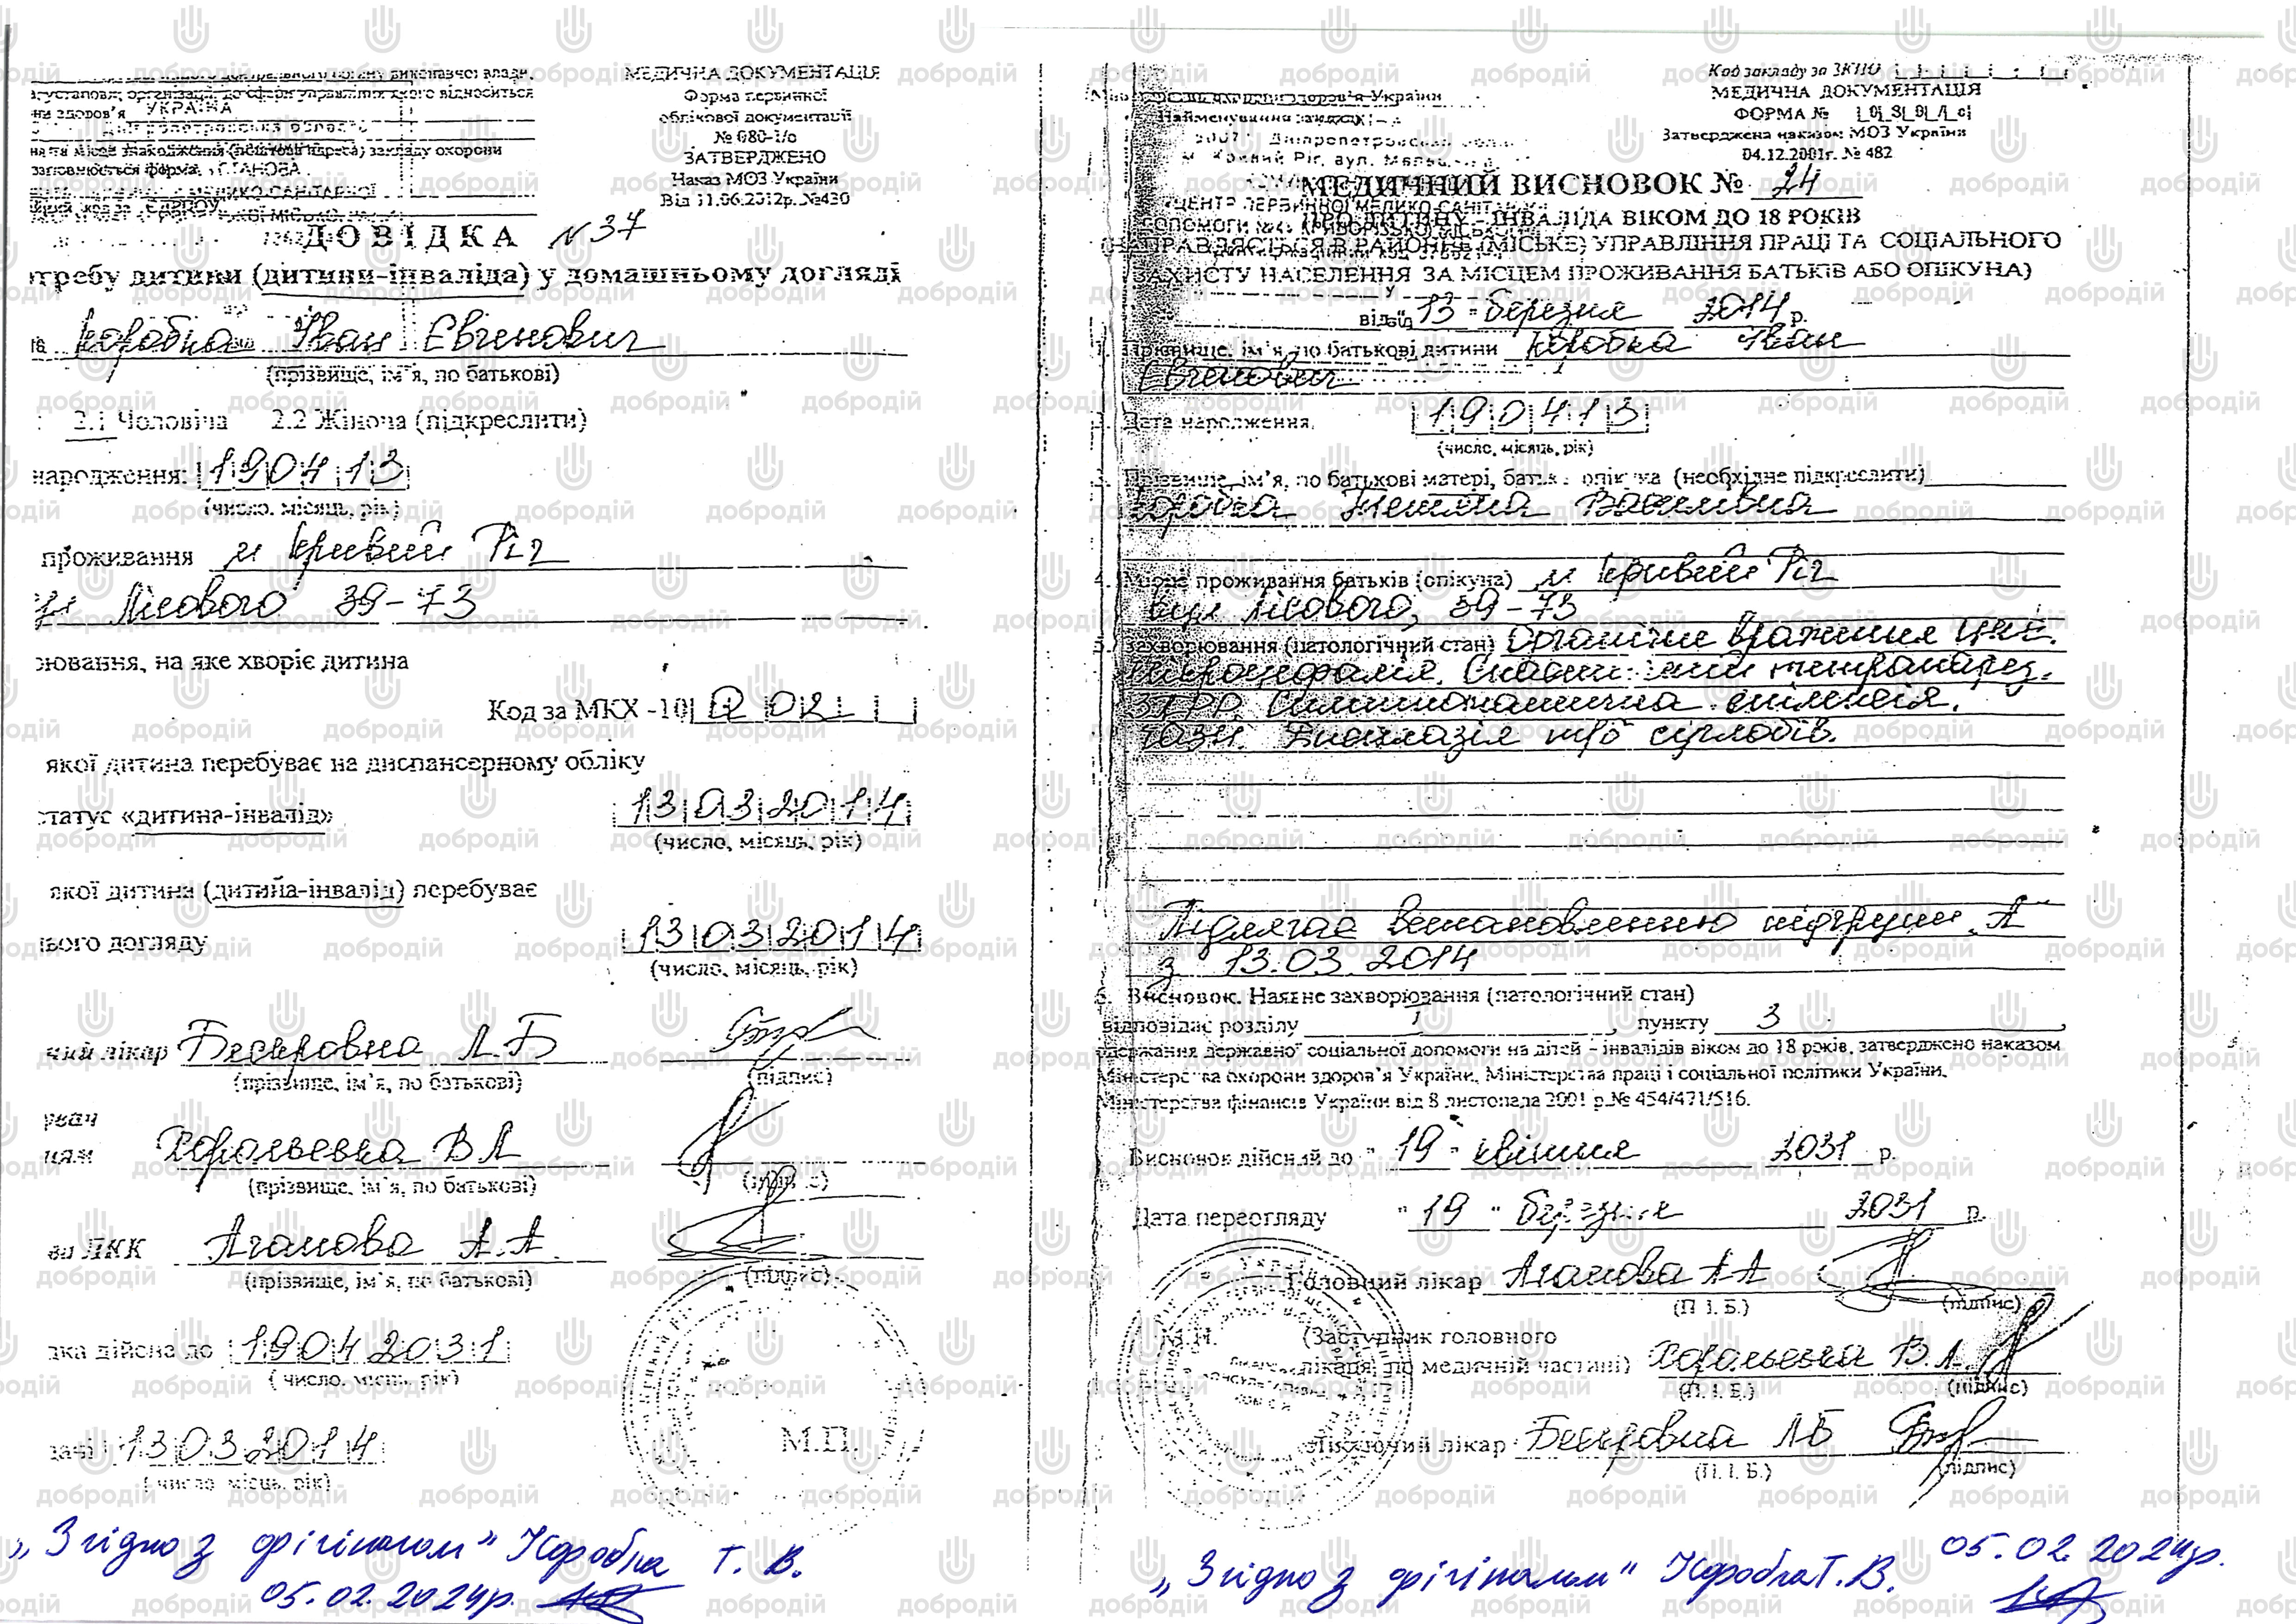 виконавчої влади,
установи, організації, до сфери управління якого відноситься
ни здоров'я УКРАЇНА
Дніпропетровська область
на та місце знаходження (поштова адреса) закладу охорони
заповнюється форма
МЕДИКО-САНІТАРНОЇ
МЕДИЧНА ДОКУМЕНТАЦІЯ
Форма первинної
облікової документації
№ 080-1/о
ЗАТВЕРДЖЕНО
Наказ МОЗ України
Від 11.06.2012р. №430
ДОВІДКА N 37
требу дитини (дитини-інваліда) у домашньому догляді
Коробка Іван Євгенович
(прізвище, ім`я, по батькові)
2.1 Чоловіча 2.2 Жіноча (підкреслити)
народження: 190413
(число, місяць, рік)
проживання м Кривий Ріг
Лісового 39-73
ювання, на яке хворіє дитина
Код за МКХ -10 Q 02
якої дитина перебуває на диспансерному обліку
статус «дитина-інвалід» 13032014
(число, місяць, рік)
якої дитина (дитина-інвалід) перебуває
ього догляду 13032014
(число, місяць, рік)
чий лікар Безкровна Л.Б
(прізвище, ім`я, по батькові) (підпис)
(прізвище, ім`я, по батькові)
ва ЛКК Агапова А.А.
(прізвище, ім`я, по батькові) (підпис)
дка дійсна до 19042031
(число, місяць, рік)
дачі 13032014
(число місяць, рік)
М.П.
„Згідно з орігіналом" Коробка Т. В.
05.02.2024р.
Код закладу за ЗКПО
МЕДИЧНА ДОКУМЕНТАЦІЯ
ФОРМА №
Затверджена наказом МОЗ України
04.12.2001г. № 482
охорони здоров'я України
Найменування закладу
Дніпропетровська
м. Кривий Ріг, вул.
МЕДИЧНИЙ ВИСНОВОК № 24
ЦЕНТР ПЕРВИННОЇ МЕДИКО-САНІТАРНОЇ
ПРО ДИТИНУ - ІНВАЛІДА ВІКОМ ДО 18 РОКІВ
(НАПРАВЛЯЄТЬСЯ В РАЙОННЕ (МІСЬКЕ) УПРАВЛІННЯ ПРАЦІ ТА СОЦІАЛЬНОГО
ЗАХИСТУ НАСЕЛЕННЯ ЗА МІСЦЕМ ПРОЖИВАННЯ БАТЬКІВ АБО ОПІКУНА)
від "13" березня 2014 р.
1. Прізвище, ім'я, по батькові дитини Коробка Іван
Євгенович
2. Дата народження. 190413
(число, місяць, рік)
3. Прізвище, ім'я, по батькові матері, батька, опікуна (необхідне підкреслити)
Коробка Тетяна Василівна
4. Місце проживання батьків (опікуна) м Кривий Ріг
вул Лісового, 39-73
5. Захворювання (патологічний стан) Органічне враження ЦНС.
Мікроцефалія. Спастичний тетрапарез.
Симптоматична епілепсія.
Дисплазія т/б суглобів.
Підлягає встановленню підгрупи „А"
з 13.03.2014
6. Висновок. Наявне захворювання (патологічний стан)
відповідає розділу I, пункту 3,
одержання державної соціальної допомоги на дітей - інвалідів віком до 18 років, затверджено наказом
Міністерства охорони здоров'я України, Міністерства праці і соціальної політики України,
Міністерства фінансів України від 8 листопада 2001 р.№ 454/471/516.
Висновок дійсний до "19" квітня 2031 р.
Дата переогляду "19" березня 2031 р.
Головний лікар Агапова АА
(П. І. Б.) (підпис)
М.П. (Заступник головного
лікаря по медичній частині) В.Л.
(П. І. Б.) (підпис)
Лікуючий лікар Безкровна ЛБ
(П. І. Б.) (підпис)
„Згідно з орігіналом" Коробка Т.В. 05.02.2024р.
добродій